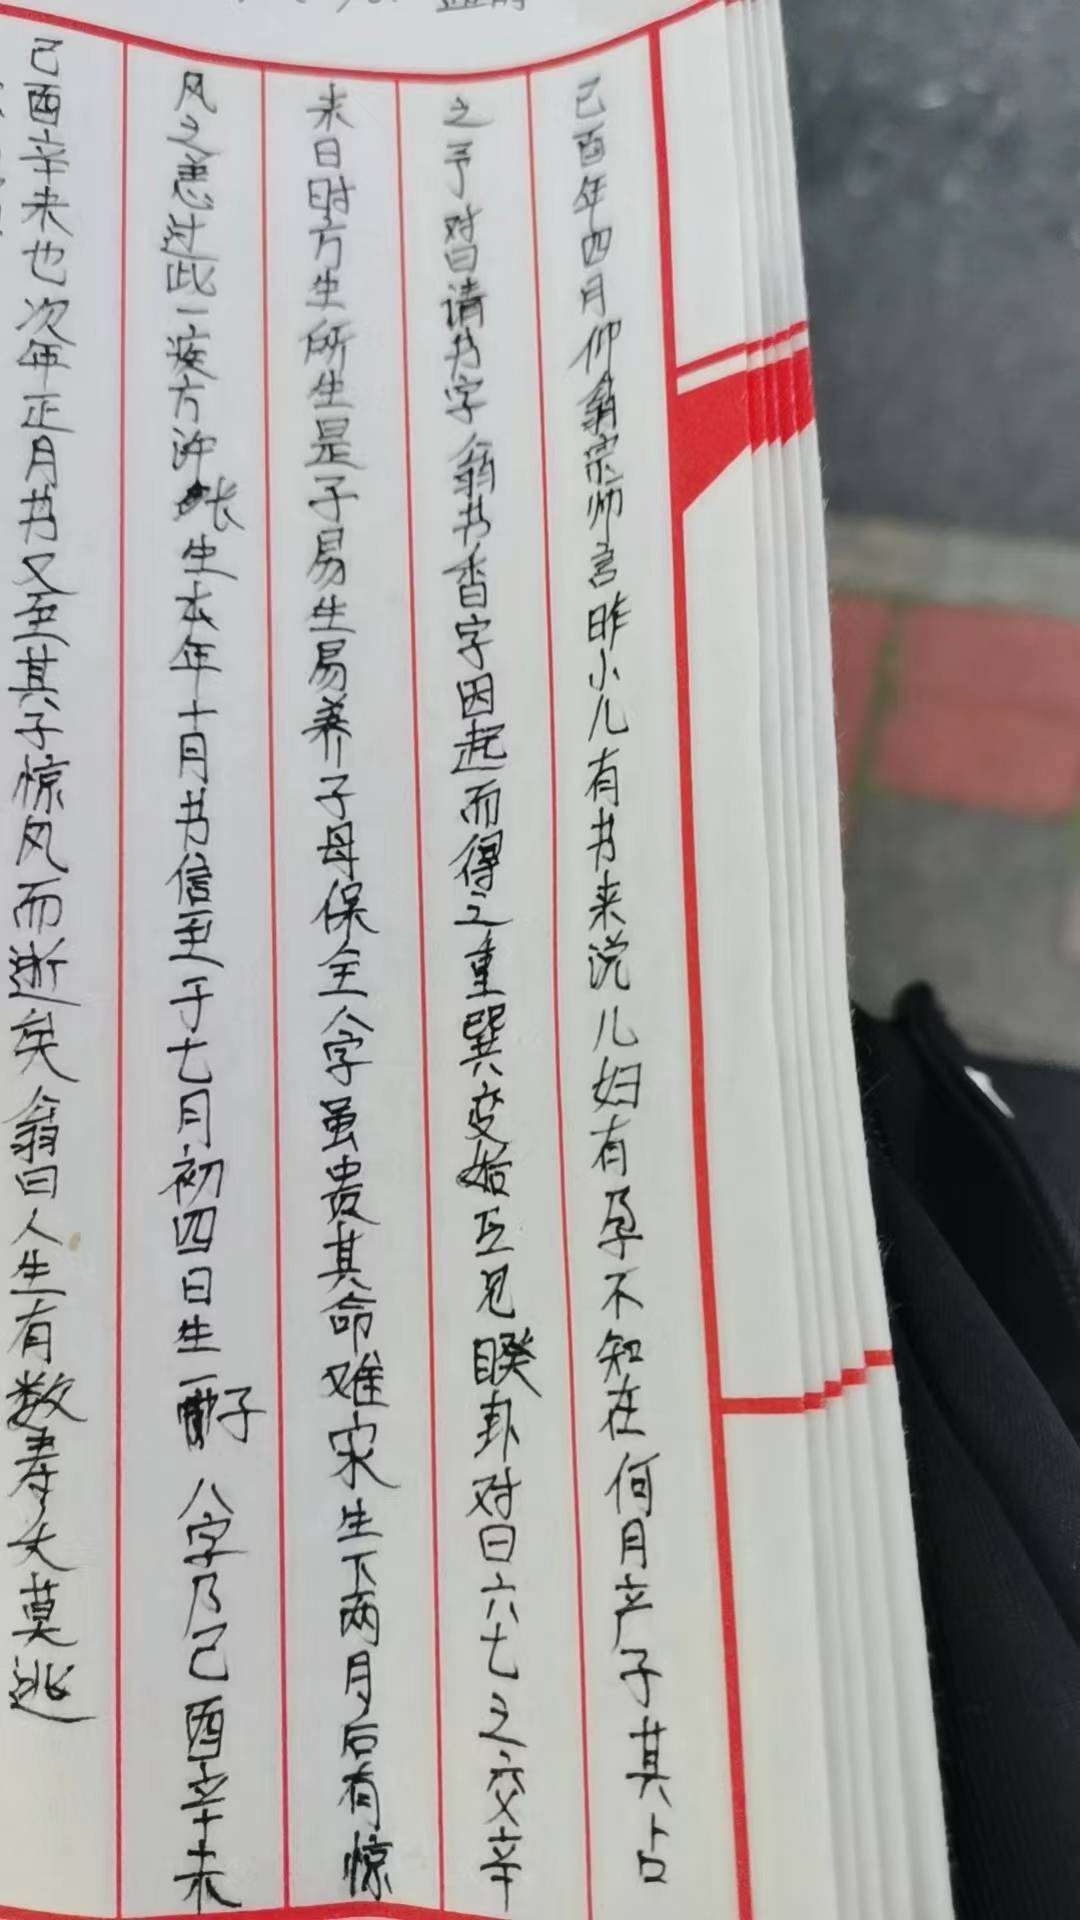 己酉年四月仰翁宗师言昨小儿有书来说儿妇有孕不知在何月产子其占
之予对曰请书字翁书香字因起而得之重巽变姤互见睽卦对曰六七之交辛
未日时方生所生是子易生易养子母保全八字虽贵其命难宋生下两月后有惊
风之恙过此一疾方许长生本年十月书信至于七月初四日生一子八字乃己酉辛未
己酉辛未也次年正月书又至其子惊风而逝矣翁曰人生有数寿夭莫逃